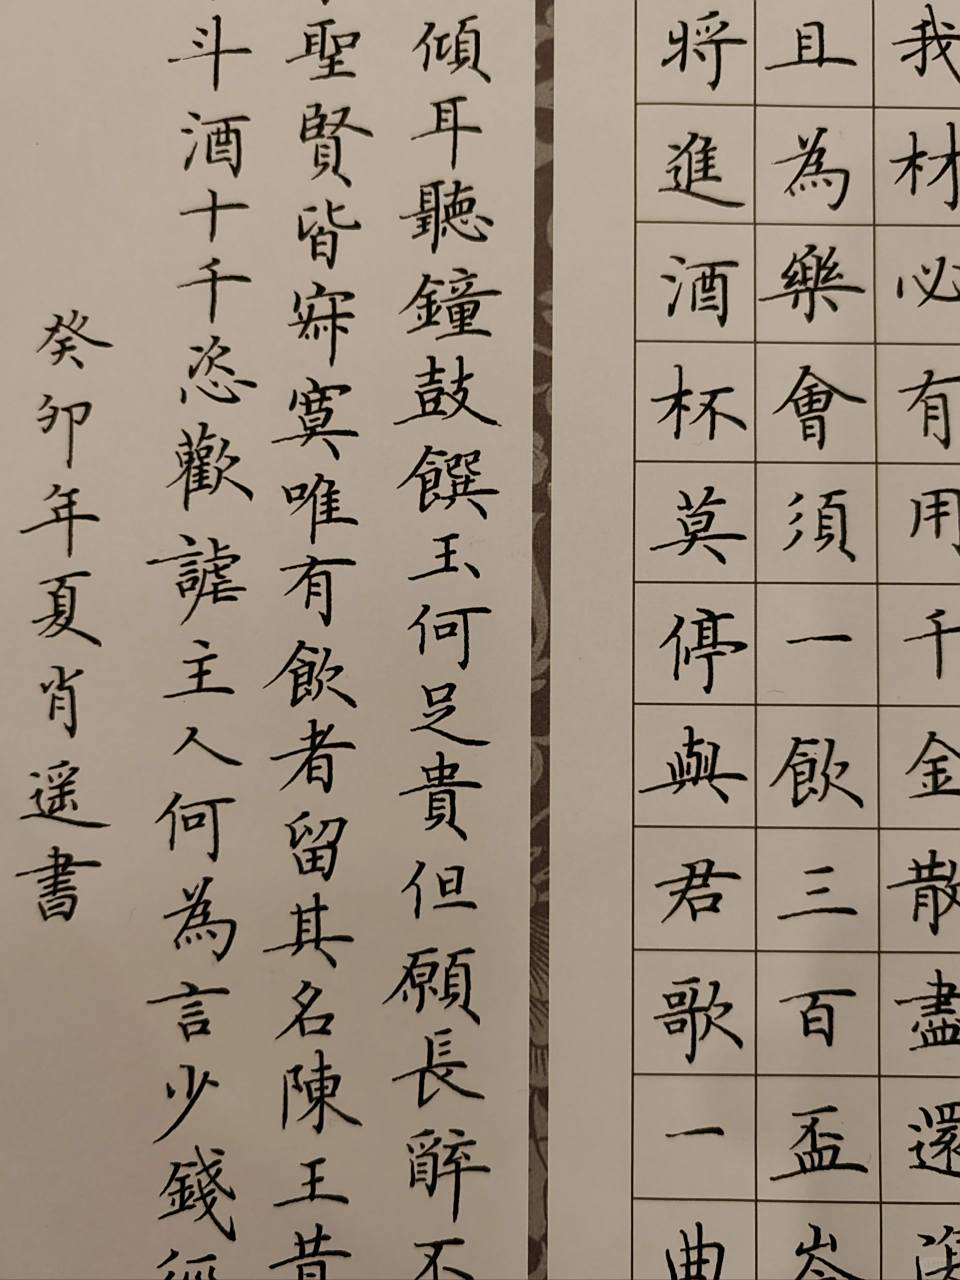 我材必有用千金散盡還
且為樂會須一飲三百盃岑
將進酒杯莫停與君歌一曲
傾耳聽鐘鼓饌玉何足貴但願長辭不
聖賢皆寂寞唯有飲者留其名陳王昔
斗酒十千恣歡謔主人何為言少錢
癸卯年夏肖遥書